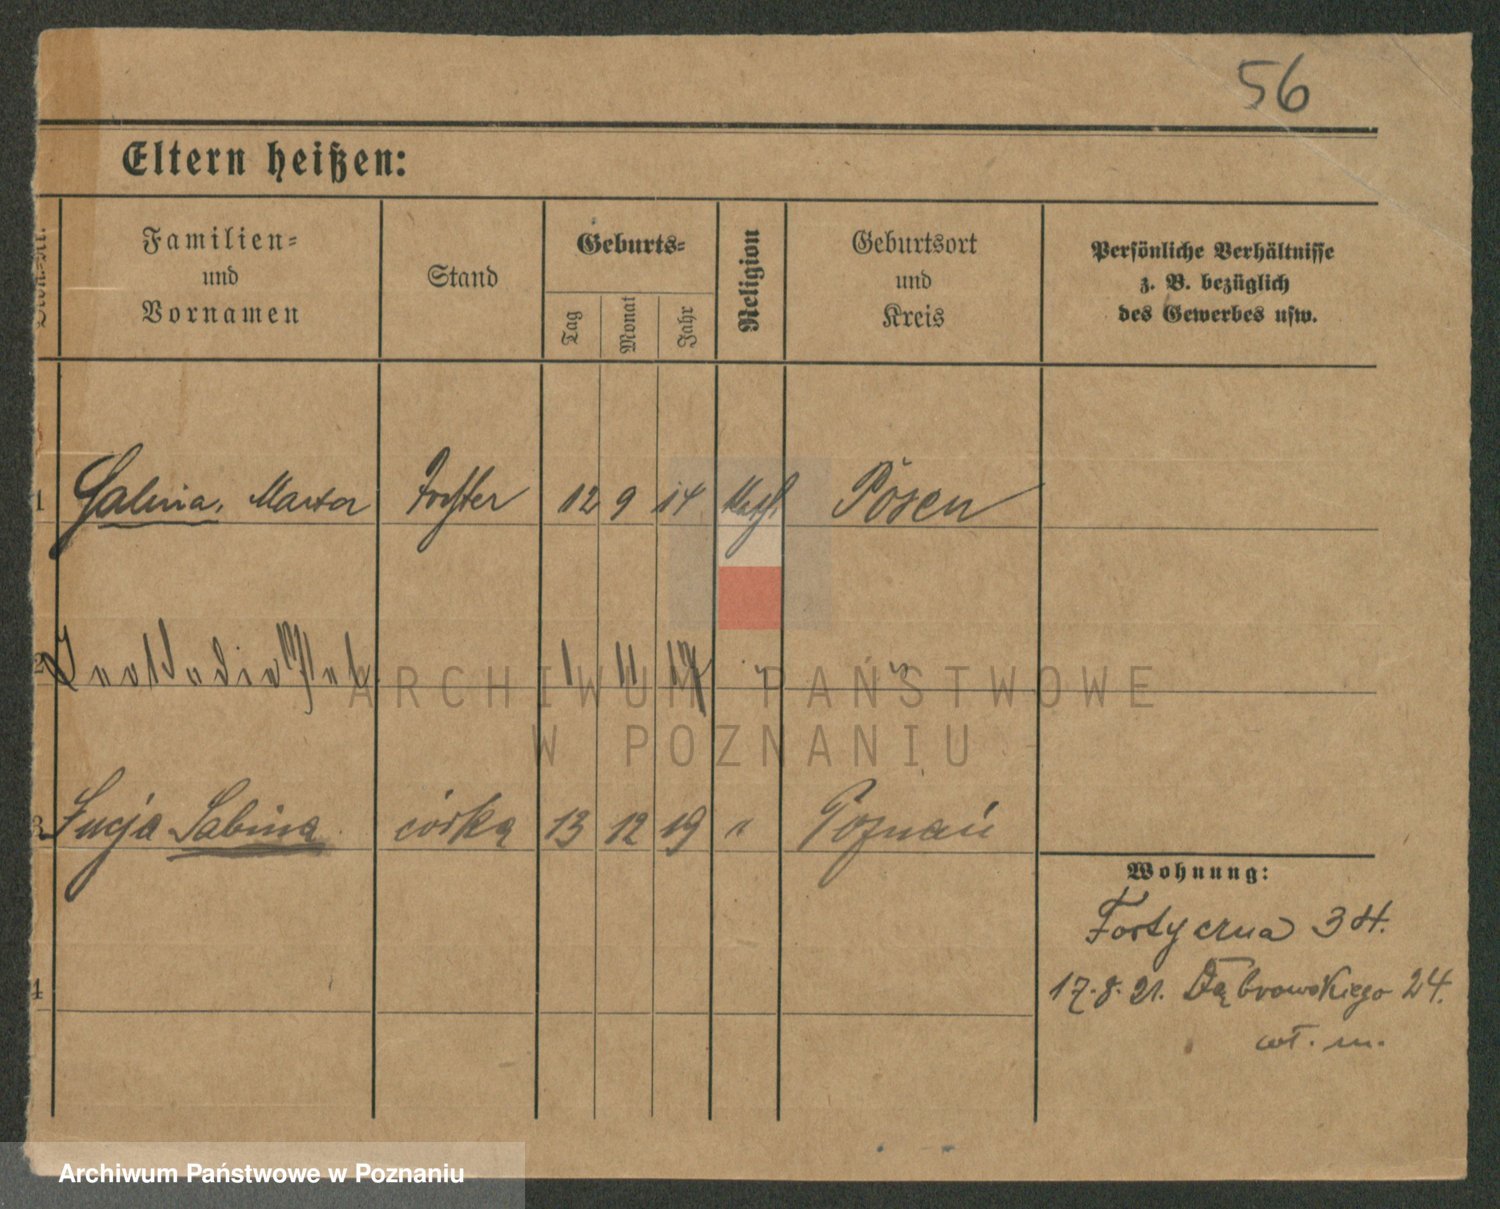 56
Eltern heißen:
Familien-
und
Vornamen
Stand
Geburts-
Tag
Monat
Jahr
Religion
Geburtsort
und
Kreis
Persönliche Verhältnisse
z. B. bezüglich
des Gewerbes usw.
1 Halina, Marta Tochter 12 9 14 kath Posen
2 1 11 17 " "
3 Łucja Sabina córka 13 12 19 " Poznań
4
Wohnung:
17.8.21. Dąbrowskiego 24.
wł. m.
ARCHIWUM PAŃSTWOWE
W POZNANIU
Archiwum Państwowe w Poznaniu